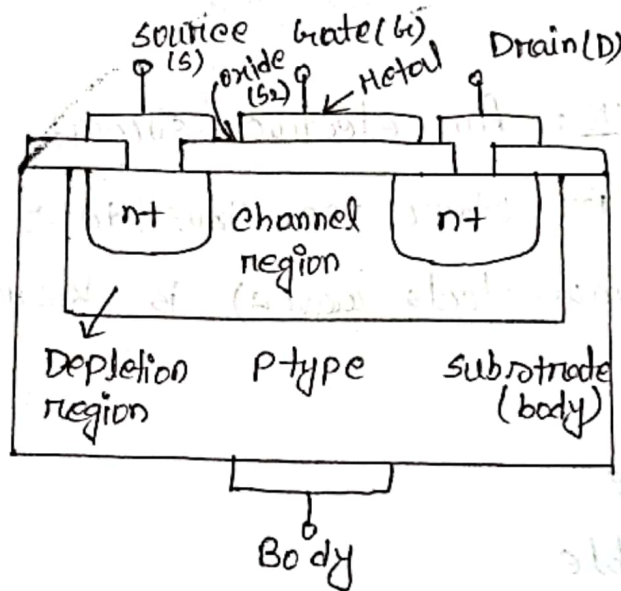 Source
(S)
oxide
(S2)
Gate(G)
Metal
Drain(D)
n+
channel
region
n+
Depletion
region
P type
substrade
(body)
Body